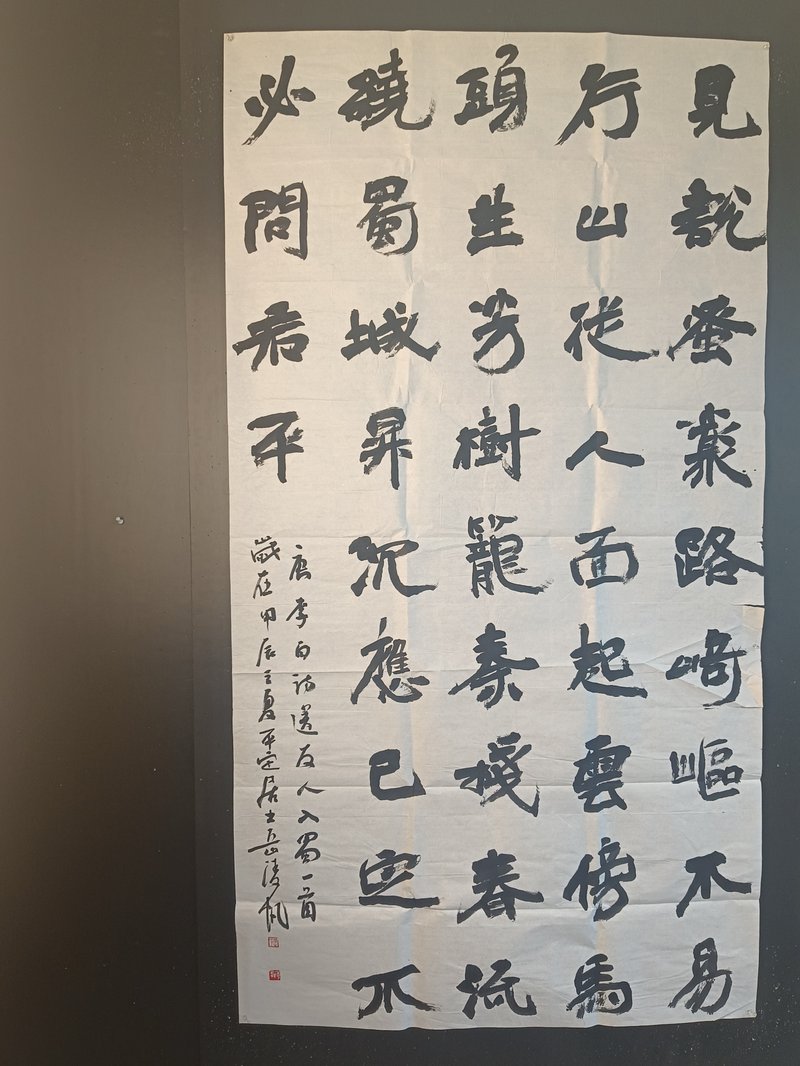 見說蚕叢路崎嶇不易
行山從人面起雲傍馬
頭生芳樹籠秦棧春流
繞蜀城昇沉應已定不
必問君平
唐李白詩送友人入蜀一首
歲在甲辰之夏平定居士岳陵帆